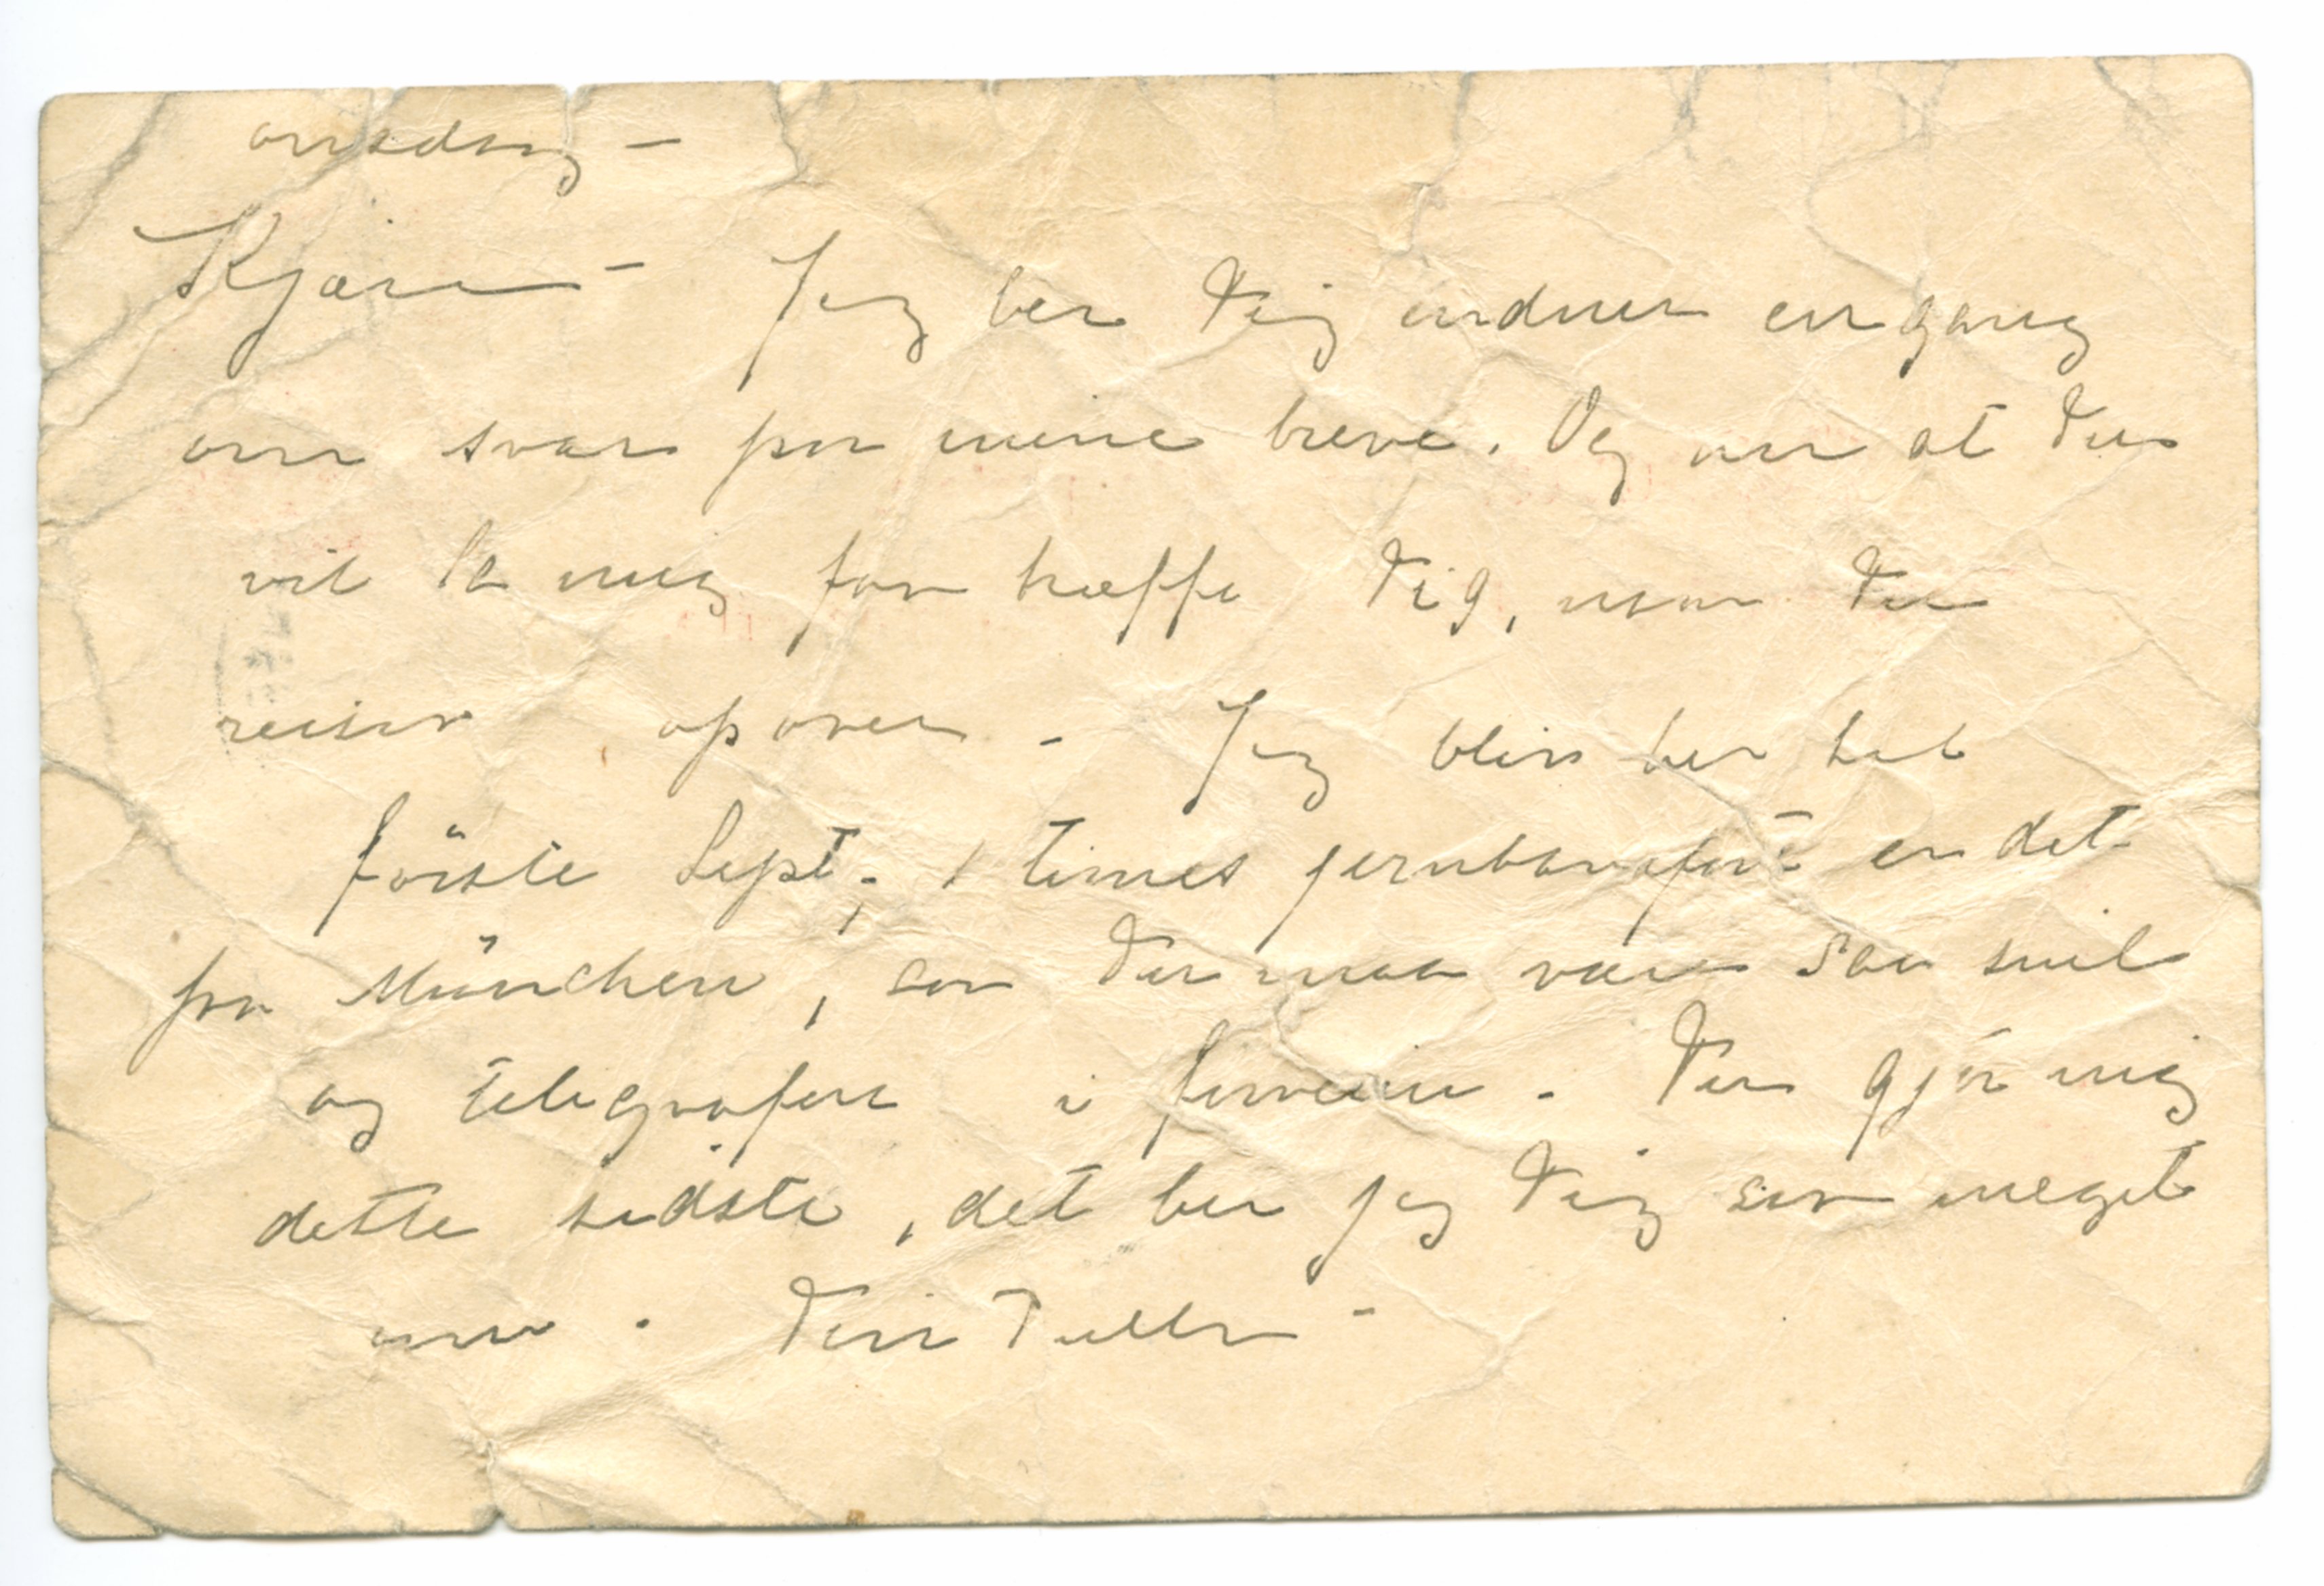 onsdag –
Kjære – Jeg ber Dig endnu en gang
om svar paa mine breve. Og om at Du
vil la mig faa træffe Dig, naar Du
reiser opover – Jeg blir her til
förste Sept; 1 times jernbanefart er det
fra München, saa Du maa være saa snil
og telegrafere i forveien – Du gjör mig
dette sidste, det ber jeg Dig saa meget
om. Din Tulla –